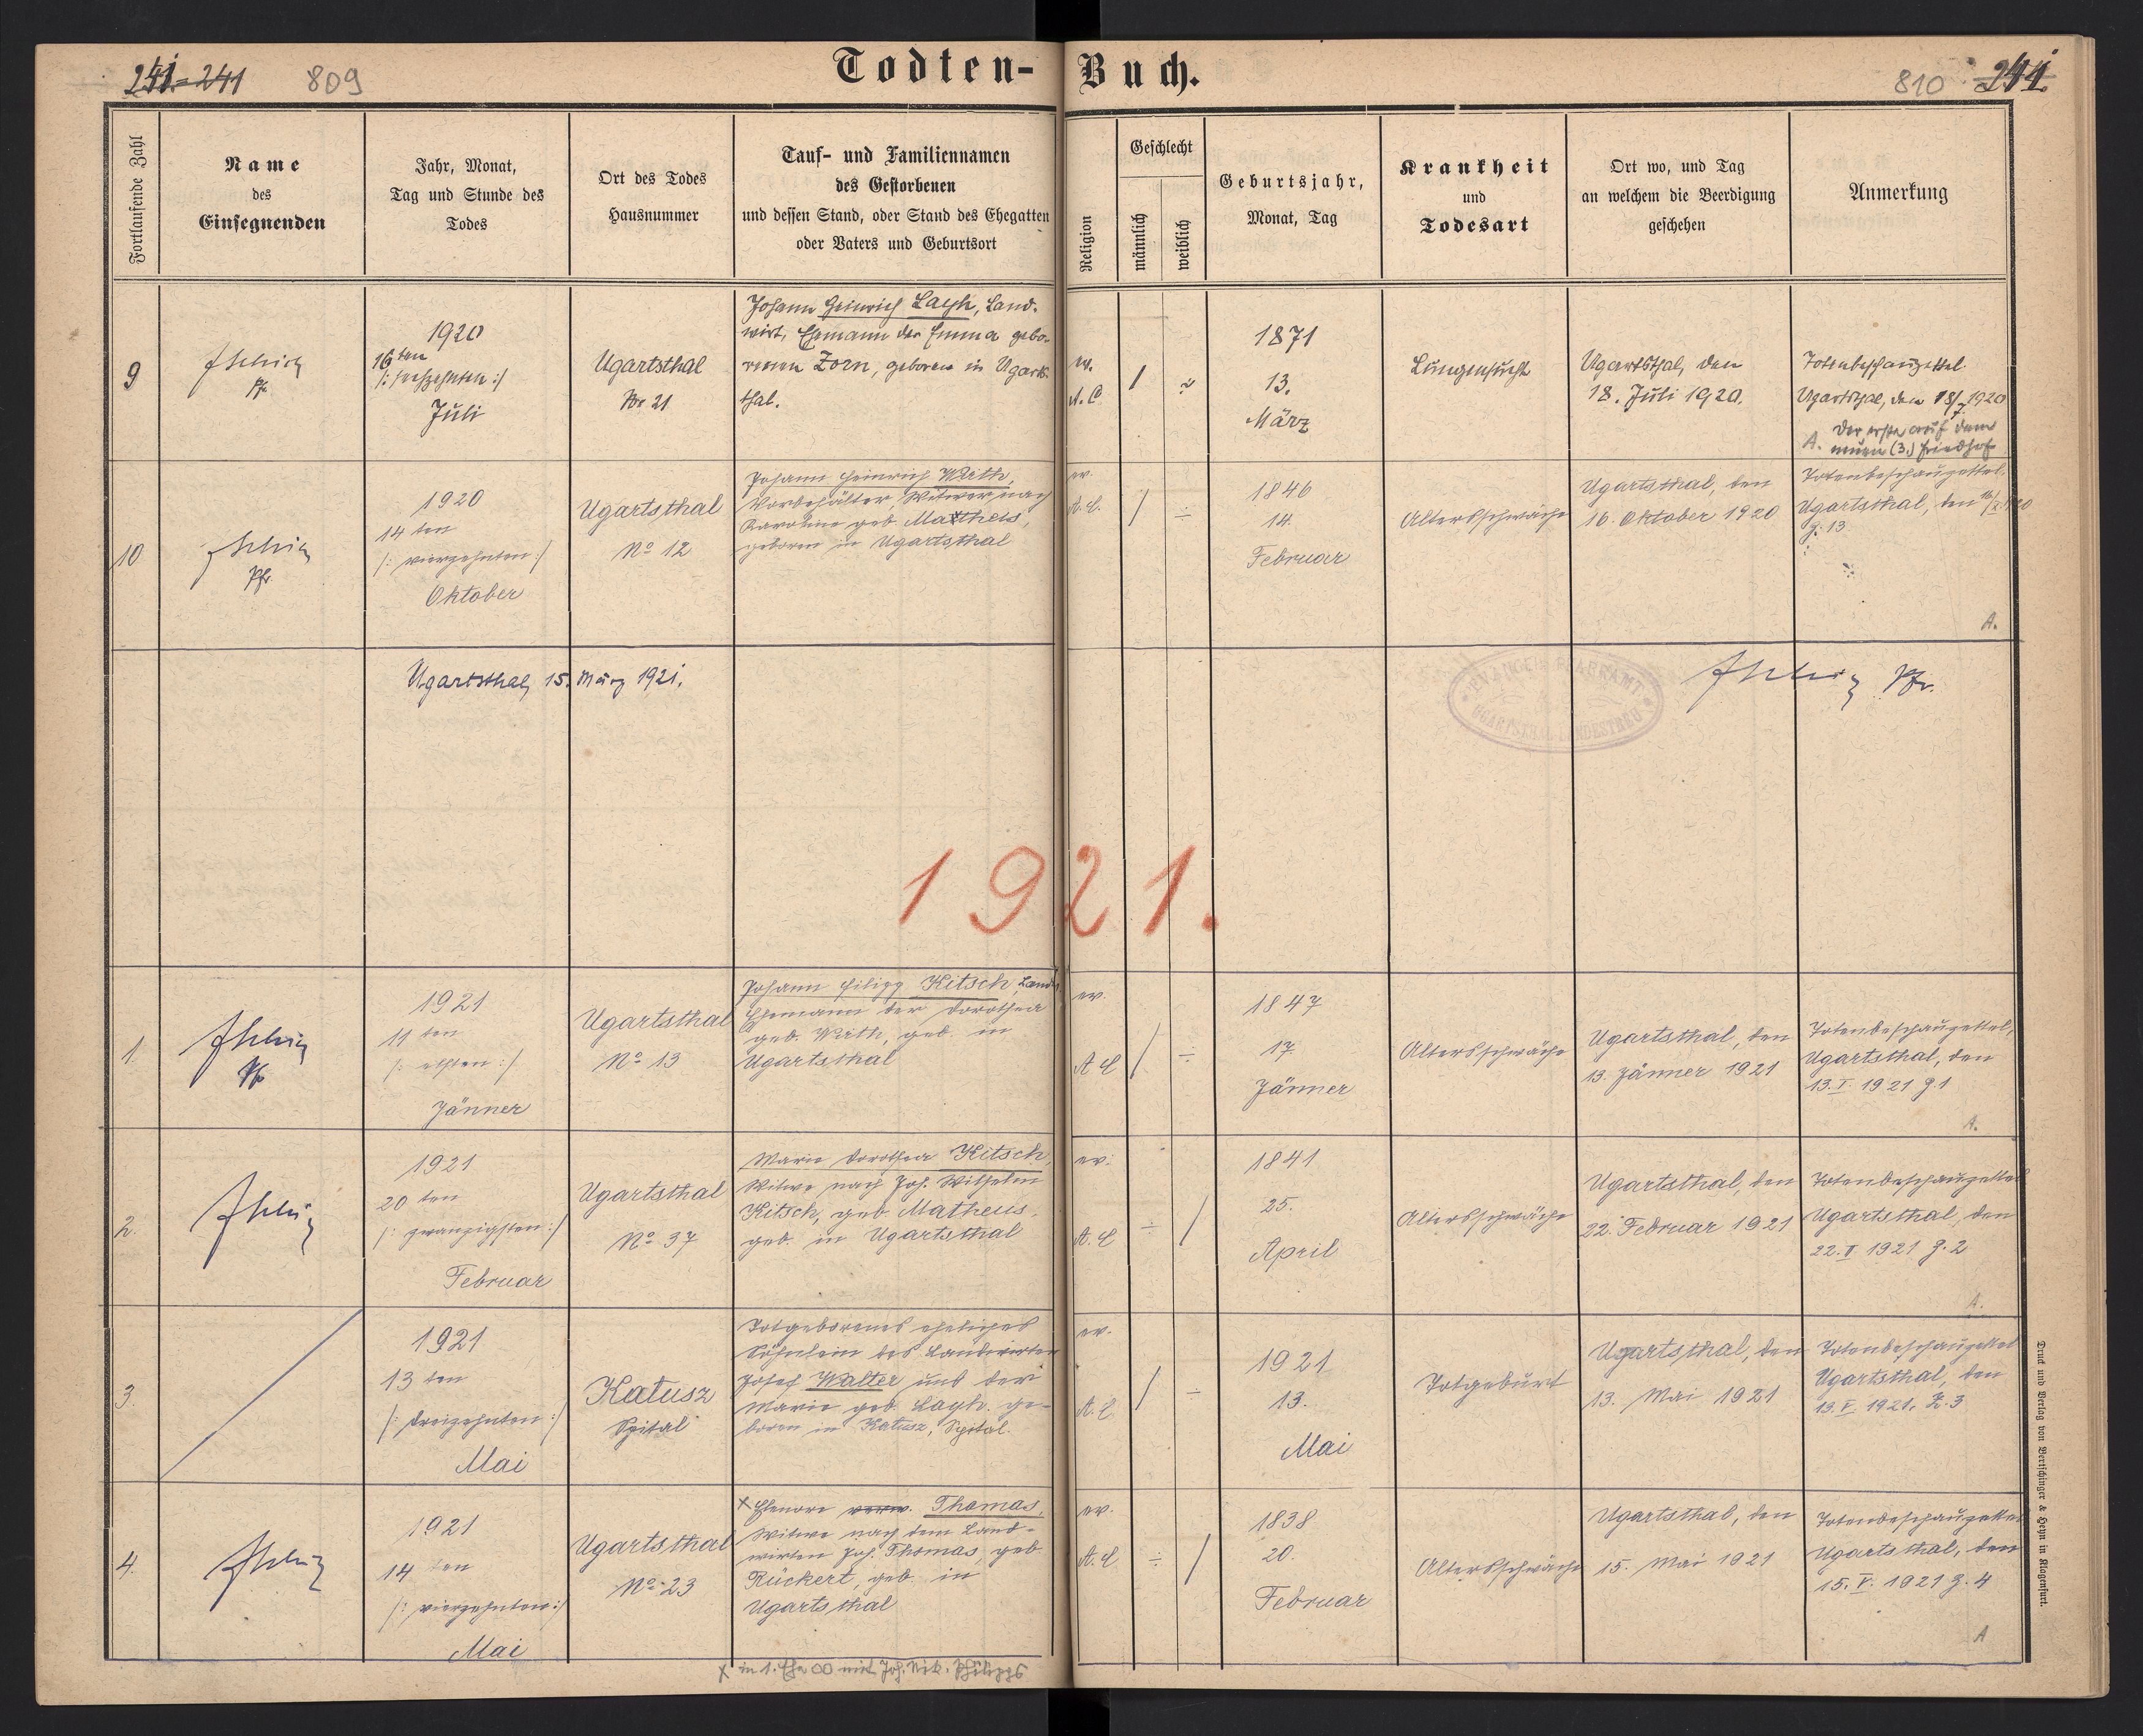 241 = 241 809
Todten- Buch.
810 241.
Fortlaufende Zahl
Name
des
Einsegnenden
Jahr, Monat,
Tag und Stunde des
Todes
Ort des Todes
Hausnummer
Tauf- und Familiennamen
des Gestorbenen
und dessen Stand, oder Stand des Ehegatten
oder Vaters und Geburtsort
Religion
Geschlecht
männlich
weiblich
Geburtsjahr,
Monat, Tag
Krankheit
und
Todesart
Ort wo, und Tag
an welchem die Beerdigung
geschehen
Anmerkung
9
Pfr.
1920
16ten
/: sechzehnten :/
Juli
Ugartsthal
Nr 21
Johann Heinrich Layh, Land-
wirt, Ehemann der Emma gebo-
renen Zorn, geboren in Ugarts-
thal.
ev.
A.C.
1871
13.
März
Lungensucht
Ugartsthal, den
18. Juli 1920.
Totenbeschauzettel.
Ugartsthal, den 18/7 1920
Der erste auf dem
A. neuen (3.) Friedhof
10
Pfr.
1920
14 ten
/: vierzehnten :/
Oktober
Ugartsthal
No 12
Johann Heinrich Wirth,
Vorbehälter, Witwer nach
Karoline geb. Mattheis,
geboren in Ugartsthal
ev.
A.C.
1846
14.
Februar
Altersschwäche
Ugartsthal, den
16. Oktober 1920
Totenbeschauzettel.
Ugartsthal, den 16/X 1920
Z. 13
A.
Ugartsthal, 15. März 1921.
EVANGEL. PFARRAMT
UGARTSTHAL LANDESTREU
Pfr.
1921.
1.
Pfr.
1921
11 ten
/: elften :/
Jänner
Ugartsthal
No 13
Johann Filipp Kitsch, Landw.
Ehemann der Dorothea
geb. Wirth, geb. in
Ugartsthal
ev.
A C
1847
17
Jänner
Altersschwäche
Ugartsthal, den
13. Jänner 1921
Totenbeschauzettel,
Ugartsthal, den
13. I. 1921 Z. 1
A.
2.
1921
20 ten
/: zwanzigsten :/
Februar
Ugartsthal
No 37
Marie Dorothea Kitsch,
Witwe nach Joh. Wilhelm
Kitsch, geb. Matheus,
geb. in Ugartsthal
ev.
A. C
1841
25.
April
Altersschwäche
Ugartsthal, den
22. Februar 1921
Totenbeschauzettel
Ugartsthal, den
22. II 1921 Z. 2
A.
3.
1921
13 ten
/: dreizehnten :/
Mai
Katusz
Spital
Totgeborenes eheliches
Söhnlein des Landwirten
Josef Walter und der
Marie geb. Layh. ge-
boren in Katusz, Spital.
ev.
A. C
1921
13.
Mai
Totgeburt
Ugartsthal, den
13. Mai 1921
Totenbeschauzettel
Ugartsthal, den
13. V. 1921. Z. 3
4.
1921
14 ten
/: vierzehnten :/
Mai
Ugartsthal
No 23
x Elenore verw. Thomas,
Witwe nach dem Land-
wirten Joh. Thomas, geb.
Rückert, geb. in
Ugartsthal
ev.
A. C
1838
20.
Februar
Altersschwäche
Ugartsthal, den
15. Mai 1921
Totenbeschauzettel
Ugartsthal, den
15. V. 1921 Z. 4
A
x in 1. Ehe ∞ mit Joh. Nik. Philipps
Druck und Verlag von Bertschinger & Heyn in Klagenfurt.